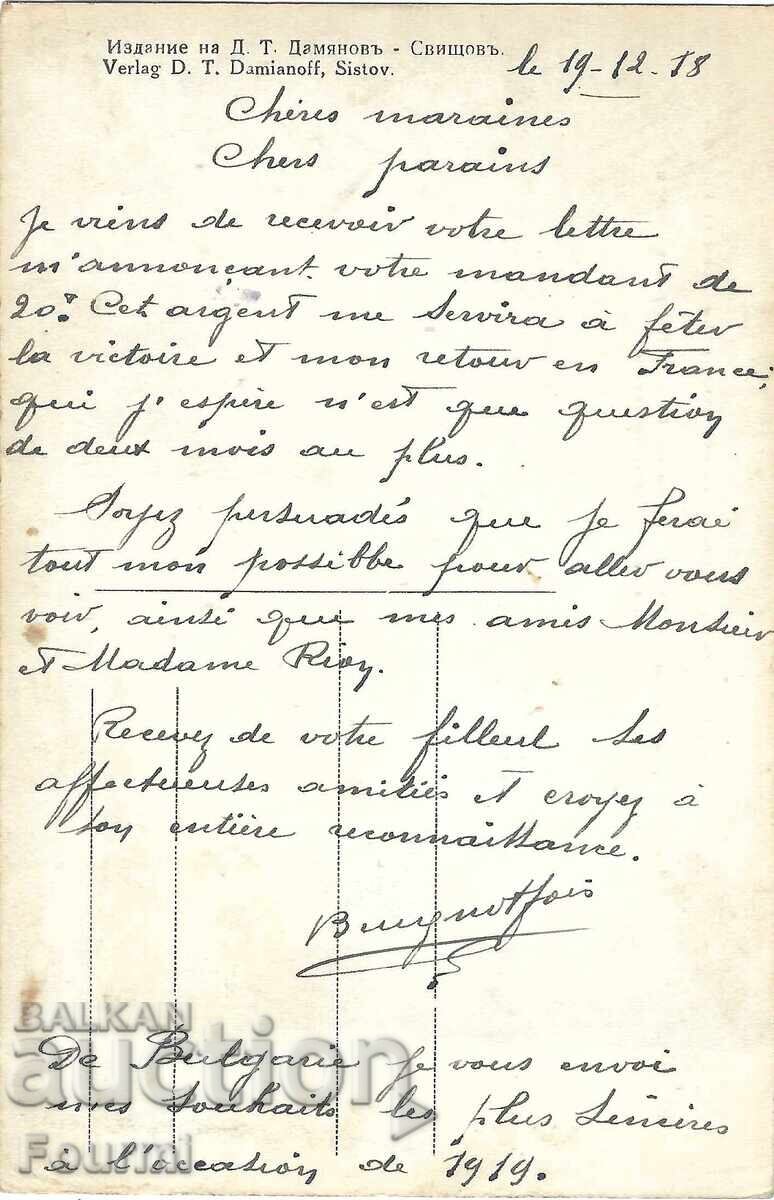 Издание на Д. Т. Дамяновъ - Свищовъ.
Verlag D. T. Damianoff, Sistov.
le 19-12-18
Chères maraines
Chers parains
Je viens de recevoir votre lettre
m'annonçant votre mandant de
20f. Cet argent me servira à fêter
la victoire et mon retour en France,
qui j'espère n'est que question
de deux mois au plus.
Soyez persuadés que je ferai
tout mon possible pour aller vous
voir, ainsi que mes amis Monsieur
et Madame
Recevez de votre filleul ses
affectueuses amitiés et croyez à
son entière reconnaissance.
De Bulgarie je vous envoi
mes souhaits les plus sincères
à l'occation de 1919.
BALKAN
auction
Fourmi